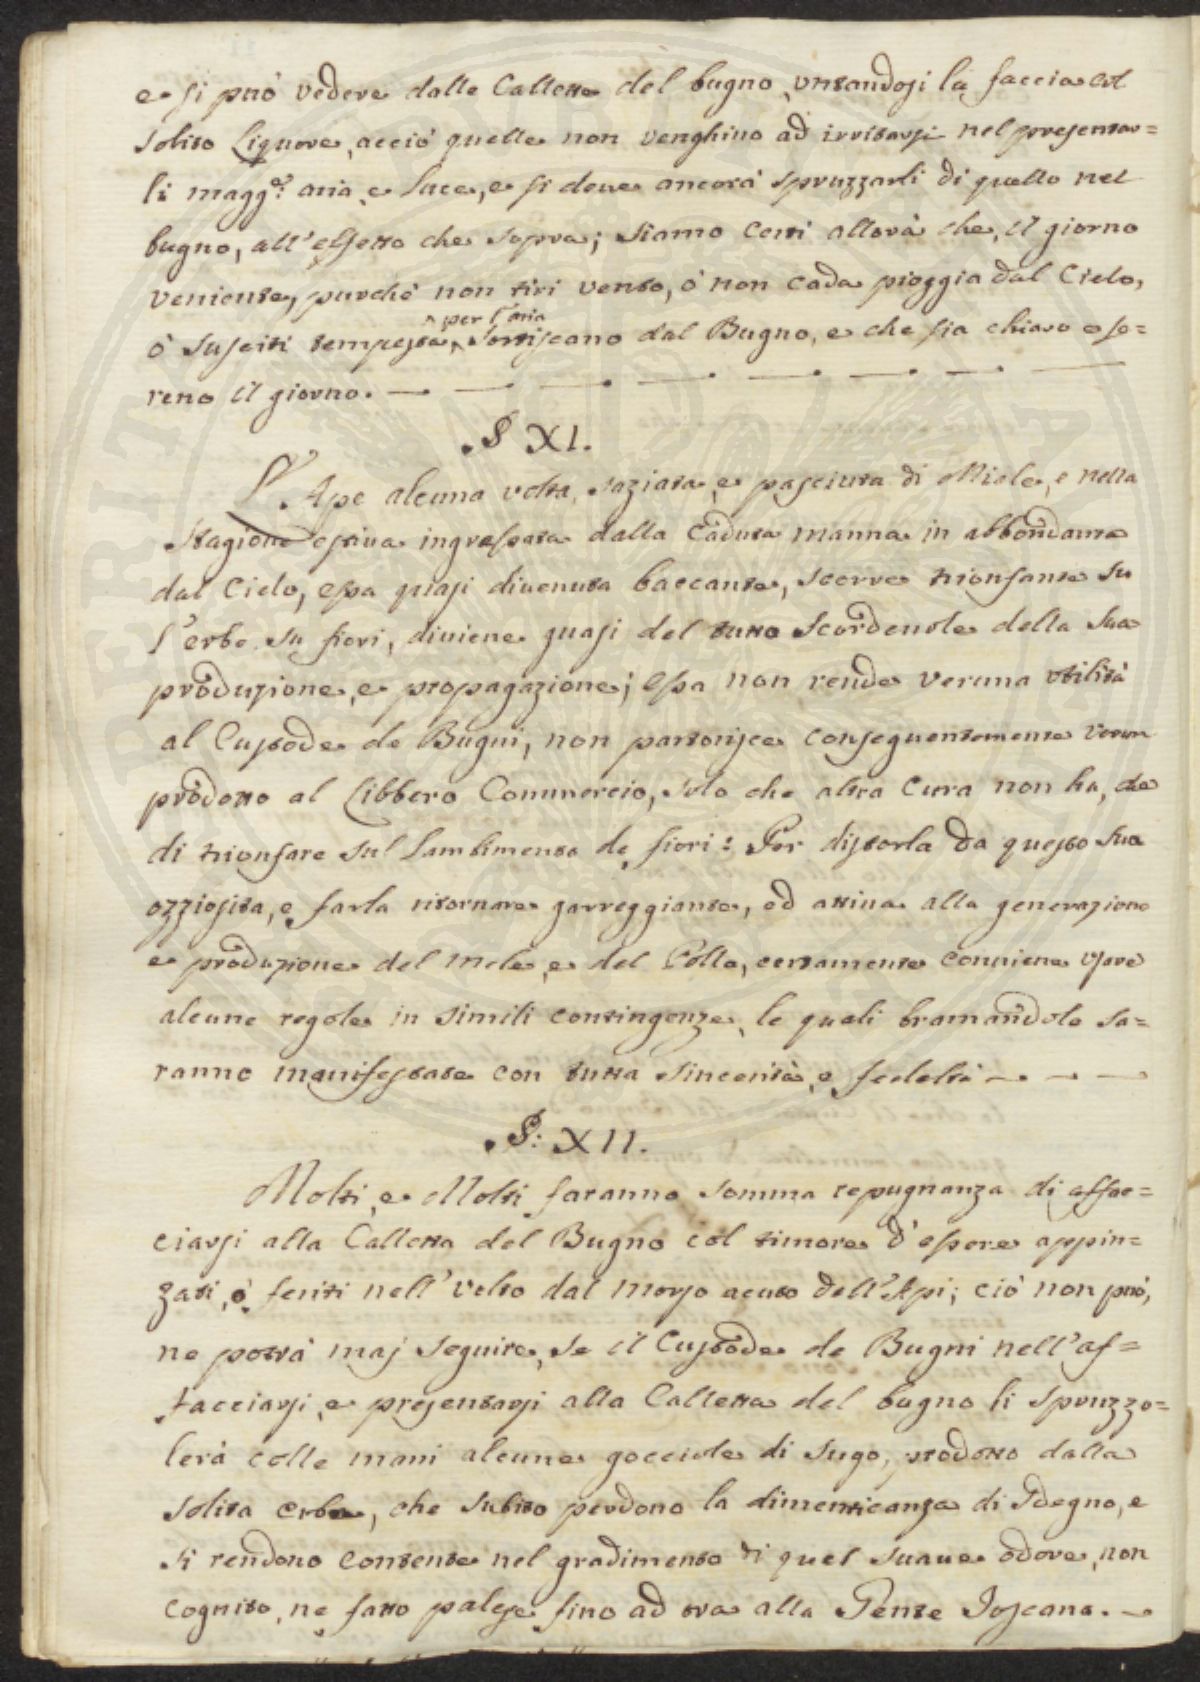 e si può vedere dalle Callette del bugno, untandosi la faccia col
solito Liquore, acciò quelle non venghino ad irritarsi nel presentar=
li magg.re aria, e luce, e si deue ancorà spruzzarli di quello nel
bugno, all'effetto che sopra; siamo certi allorà che, il giorno
veniente, purchè non tiri vento, ò non cada pioggia dal Cielo,
ò susciti tempesta ^per l'aria sortiscano dal Bugno, e che sia chiaro e se=
reno il giorno. —
.§ XI.
L'Ape alcuna volta, saziata, e pasciuta di Miele, e nella
stagione estiua ingrassata dalla Caduta manna in abbondanza
dal Cielo, essa quasi diuenuta baccante, scorre trionfante su
l'erbe, su fiori, diuiene quasi del tutto scordeuole della sua
produzione, e propagazione; essa non rende veruna vtilità
al Custode de Bugni, non partorisce conseguentemente verun
prodotto al Libbero Commercio, solo che altra Cura non ha, che
di trionfare sul lambimento de fiori: Per distorla da questo sua
ozziosita, e farla ritornare garreggiante, ed attiua alla generazione
e produzione del Mele, e del Polle, certamente conuiene vsare
alcune regole in simili contingenze, le quali bramandole sa=
ranno manifestate con tutta sincerità, e fedeltà — — —
.§: XII.
Molti, e Molti faranno somma repugnanza di affac=
ciarsi alla Calletta del Bugno col timore d'essere appin=
zati, ò feriti nell'volto dal morso acuto dell'Api; ciò non può,
ne potrà maj seguire, se il Custode de Bugni nell'af=
facciarsi, e presentarsi alla Calletta del bugno li spruzzo=
lerà colle mani alcune gocciole di sugo, prodotto dalla
solita erba, che subito perdono la dimenticanza di sdegno, e
si rendono contente nel gradimento di quel suaue odore, non
cognito, ne fatto palese fino ad ora alla Gente Toscana. —